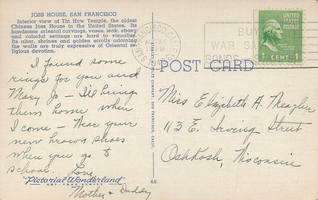 JOSS HOUSE, SAN FRANCISCO
Interior view of Tin How Temple, the oldest
Chinese Joss House in the United States. Its
handsome oriental carvings, vases, teak, ebony
and colorful settings are hard to visualize.
The altar, shrines and golden scrolls adorning
the walls are truly expressive of Oriental re-
ligious devotion.
I found some
rings for you and
Mary Jo - I'll bring
them home when
I come - Wear your
new brown shoes
when you go to
school. Love
Mother & Daddy
Pictorial Wonderland
POST CARD
BUY
WAR SA
1 CENT 1
Miss Elizabeth A. Meagher
1113 E. Irving Street
Oshkosh, Wisconsin